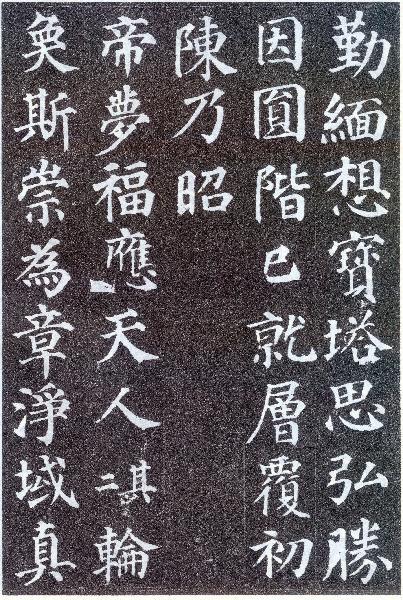 勤緬想寶塔思弘勝
因圎階已就層覆初
陳乃昭
帝夢福應天人其二輪
奐斯崇為章淨域真